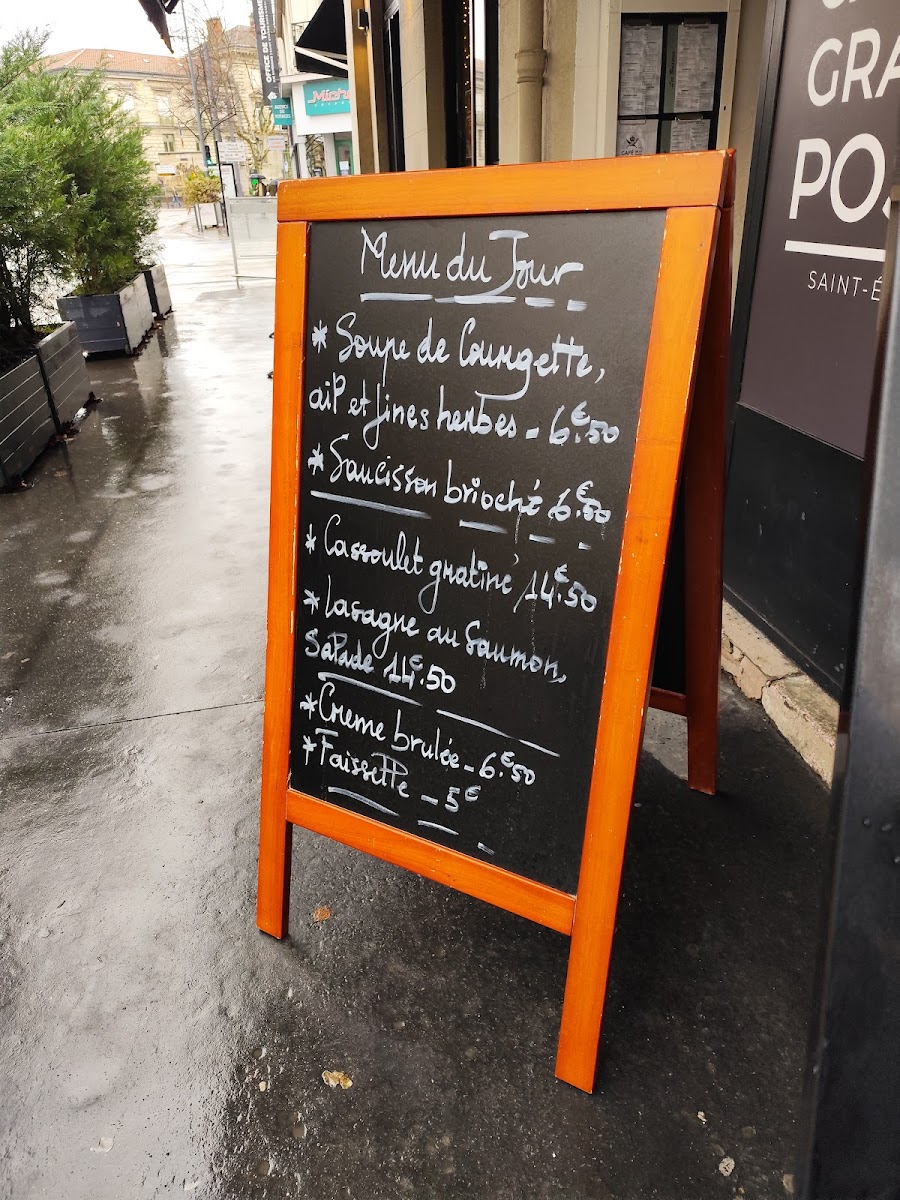 Menu du Jour
* Soupe de Courgette,
ail et fines herbes - 6€.50
* Saucisson brioché 6€.50
* Cassoulet gratiné 14€.50
* Lasagne au Saumon,
Salade 14€.50
* Creme brulée - 6€.50
* Faisselle - 5€
GRA
PO
SAINT-É
OFFICE DE TOU
CAFÉ